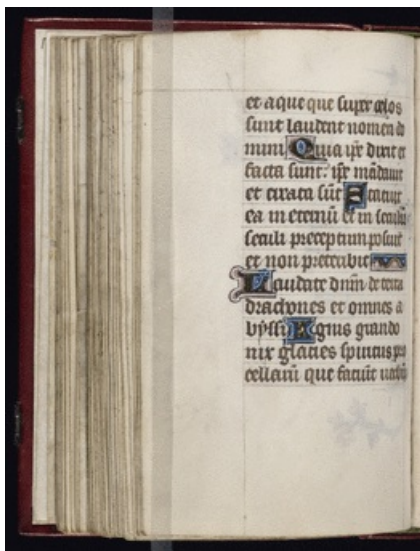 et aque que super celos
sunt laudent nomen do
mini Quia ip̄e dixit et
facta sunt: ip̄e mādauit
et creata sūt Statuit
ea in eternū et in seculū
seculi preceptum posuit
et non preteribit
Laudate dn̄m de terra
dracones et omnes a
byssi Ignis grando
nix glacies spiritus pro
cellarū que faciūt uerbū